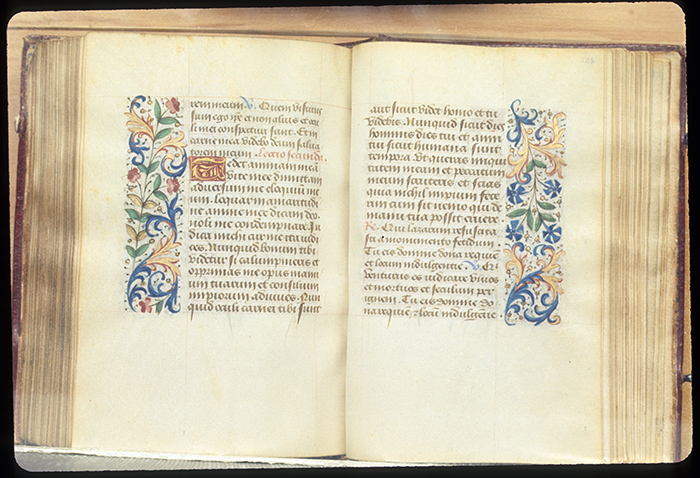 rem meum. ℣. Quem visurus
sum ego ip̄e et non alius et ocu
li mei conspecturi sunt. Et in
carne mea videbo deum salua
torem meum. Lectio secunda.
Tedet animam meā
vite mee dimittam
adversum me eloquiū me
um. loquar in amaritudi
ne anime mee dicam deo
noli me condempnare In
dica michi cur me ita iudi
ces. Nunquid bonum tibi
videtur si calumpnieris et
opprimas me opus manu
um tuarum et consilium
impiorum adiuves. Nun
quid oculi carnei tibi sunt
aut sicut videt homo et tu
videbis. Nunquid sicut dies
hominis dies tui et anni
tui sicut humana sunt
tempora Ut queras iniqui
tatem meam et peccatum
meum scruteris et scias
quia nichil impium fece
rim cum sit nemo qui de
manu tua possit eruere
℟. Qui lazarum resuscita
sti a monumento fetidum
Tu eis domine dona requiē
et locum indulgentie ℣.
venturus es iudicare vivos
et mortuos et seculum per
ignem. Tu eis domine do
na requiē et locū indulgētie